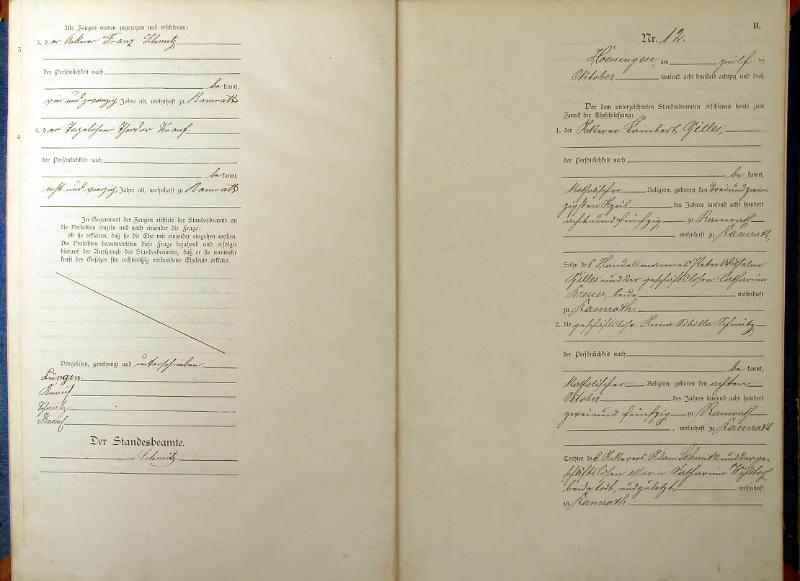 Als Zeugen waren zugezogen und erschienen:
3. der Ackerer Franz Schmitz
der Persönlichkeit nach
be kannt,
vier und zwanzig Jahre alt, wohnhaft zu Ramrath
4. der Tagelöhner Theodor Knauf
der Persönlichkeit nach
be kannt,
acht und vierzig Jahre alt, wohnhaft zu Ramrath
In Gegenwart der Zeugen richtete der Standesbeamte an
die Verlobten einzeln und nach einander die Frage:
ob sie erklären, daß sie die Ehe mit einander eingehen wollen.
Die Verlobten beantworteten diese Frage bejahend und erfolgte
hierauf der Ausspruch des Standesbeamten, daß er sie nunmehr
kraft des Gesetzes für rechtmäßig verbundene Eheleute erkläre.
Vorgelesen, genehmigt und unterschrieben.
Knauf
Der Standesbeamte.
Schmitz
B.
Nr. 12.
Hoeningen, am zwölf ten
Oktober tausend acht hundert achtzig und drei.
Vor dem unterzeichneten Standesbeamten erschienen heute zum
Zweck der Eheschließung:
1. der Ackerer Lambert Gilles,
der Persönlichkeit nach
be kannt,
katholischer Religion, geboren den drei und zwan
zigsten April des Jahres tausend acht hundert
acht und fünfzig zu Ramrath
, wohnhaft zu Ramrath,
Sohn des Handelsmannes Peter Wilhelm
Gilles und der geschäftslosen Catharina
beide wohnhaft
zu Ramrath.
2. die geschäftslose Anna Schmitz
der Persönlichkeit nach
be kannt,
katholischer Religion, geboren den achten
Oktober des Jahres tausend acht hundert
zwei und fünfzig zu Ramrath
, wohnhaft zu Ramrath
Tochter des Ackerers Adam Schmitz und der ge-
schäftslosen Maria Catharina
beide todt, und zuletzt wohnhaft
zu Ramrath.